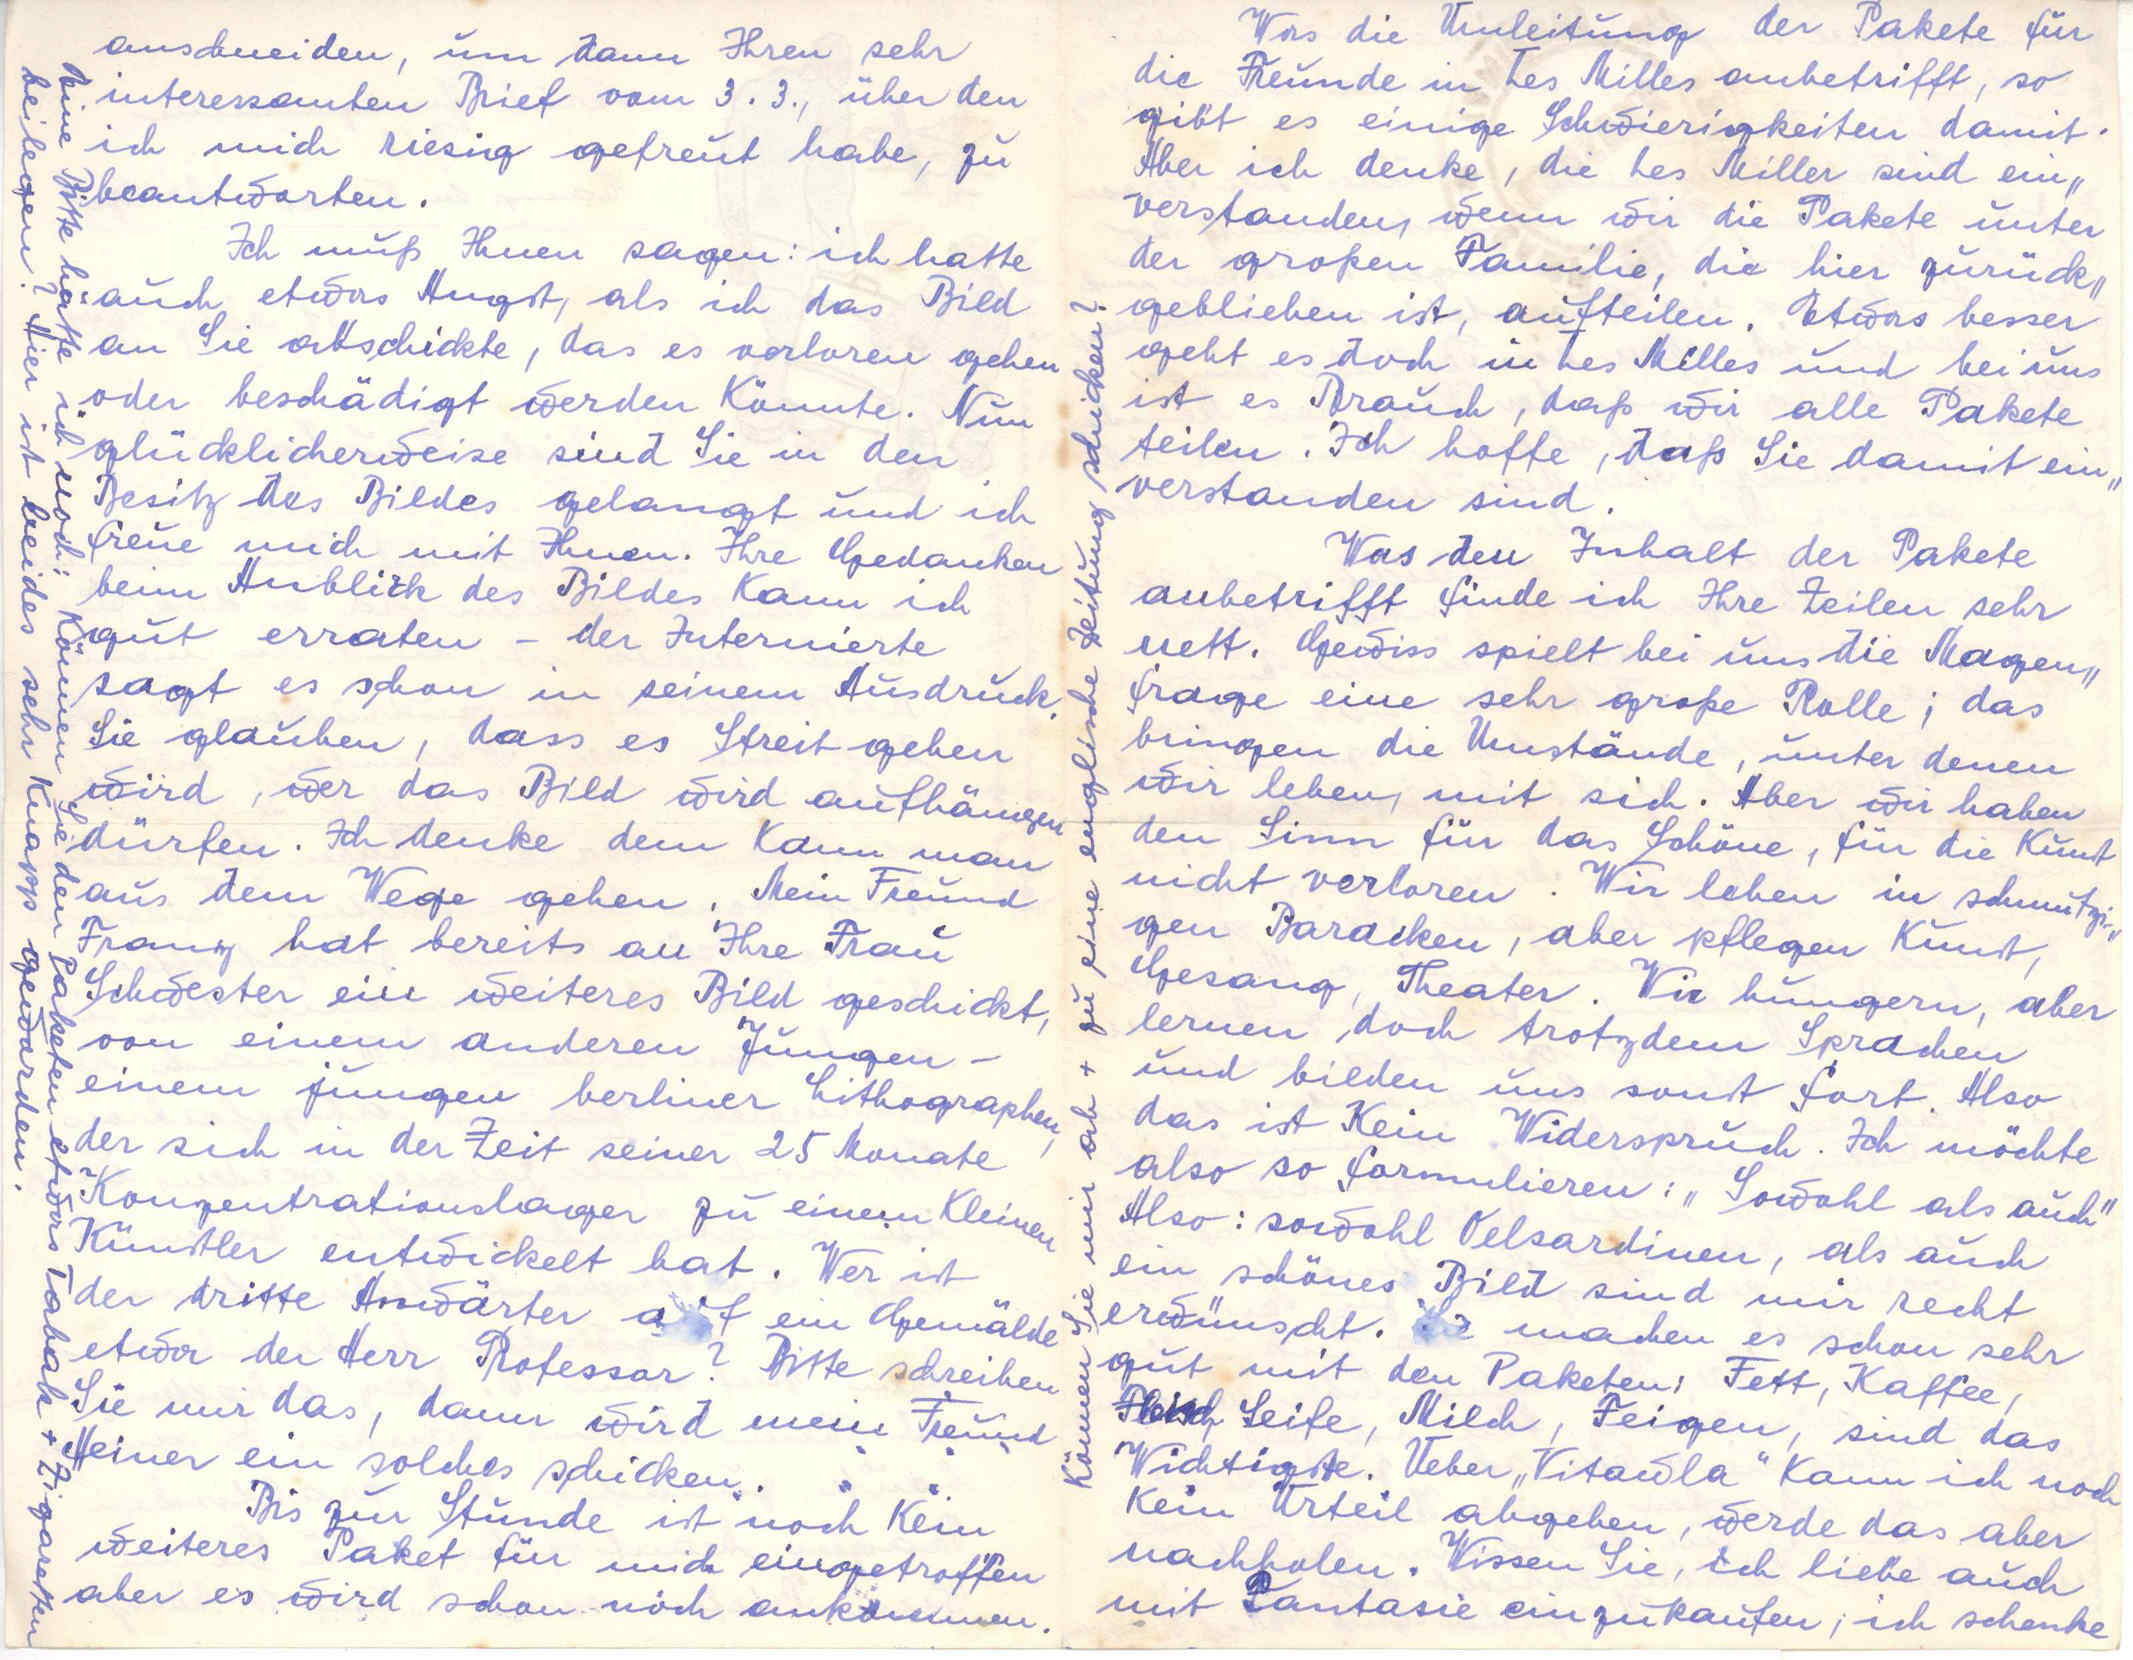 anschneiden, um dann Ihren sehr
interessanten Brief vom 3.3., über den
ich mich riesig gefreut habe, zu
beantworten.
Ich muß Ihnen sagen: ich hatte
auch etwas Angst, als ich das Bild
an Sie abschickte, das es verloren gehen
oder beschädigt werden könnte. Nun
glücklicherweise sind Sie in den
Besitz des Bildes gelangt und ich
freue mich mit Ihnen. Ihre Gedanken
beim Anblick des Bildes kann ich
gut erraten – der Internierte
sagt es schon in seinem Ausdruck.
Sie glauben, dass es Streit geben
wird, wer das Bild wird aufhängen
dürfen. Ich denke dem kann man
aus dem Wege gehen. Mein Freund
Franz hat bereits an Ihre Frau
Schwester ein weiteres Bild geschickt,
von einem anderen Jungen –
einem jungen berliner Lithographen,
der sich in der Zeit seiner 25 Monate
Konzentrationslager zu einem kleinen
Künstler entwickelt hat. Wer ist
der dritte Anwärter auf ein Gemälde
etwa der Herr Professor? Bitte schreiben
Sie mir das, dann wird mein Freund
Heiner ein solches schicken.
Bis zur Stunde ist noch kein
weiteres Paket für mich eingetroffen
aber es wird schon noch ankommen.
Eine Bitte hätte ich noch: Können Sie den Paketen etwas Tabak + Zigaretten
beilegen? Hier ist beides sehr knapp geworden.
Was die Umleitung der Pakete für
die Freunde in Les Milles anbetrifft, so
gibt es einige Schwierigkeiten damit.
Aber ich denke, die Les Miller sind ein„
verstanden, wenn wir die Pakete unter
der großen Familie, die hier zurück„
geblieben ist, aufteilen. Etwas besser
geht es doch in Les Milles und bei uns
ist es Brauch, daß wir alle Pakete
teilen. Ich hoffe, daß Sie damit ein„
verstanden sind.
Was den Inhalt der Pakete
anbetrifft finde ich Ihre Zeilen sehr
nett. Gewiss spielt bei uns die Magen„
frage eine sehr große Rolle; das
bringen die Umstände, unter denen
wir leben, mit sich. Aber wir haben
den Sinn für das Schöne, für die Kunst
nicht verloren. Wir leben in schmutzi„
gen Baracken, aber pflegen Kunst,
Gesang, Theater. Wir hungern, aber
lernen doch trotzdem Sprachen
und bilden uns sonst fort. Also
das ist kein Widerspruch. Ich möchte
also so formulieren: „Sowohl als auch"
Also: sowohl Oelsardinen, als auch
ein schönes Bild sind mir recht
erwünscht. machen es schon sehr
gut mit den Paketen: Fett, Kaffee,
Fleisch Seife, Milch, Feigen, sind das
Wichtigste. Ueber „Vitawla" kann ich noch
kein Urteil abgeben, werde das aber
nachholen. Wissen Sie, ich liebe auch
mit Fantasie einzukaufen; ich schenke
Können Sie mir ab + zu eine englische Zeitung schicken?